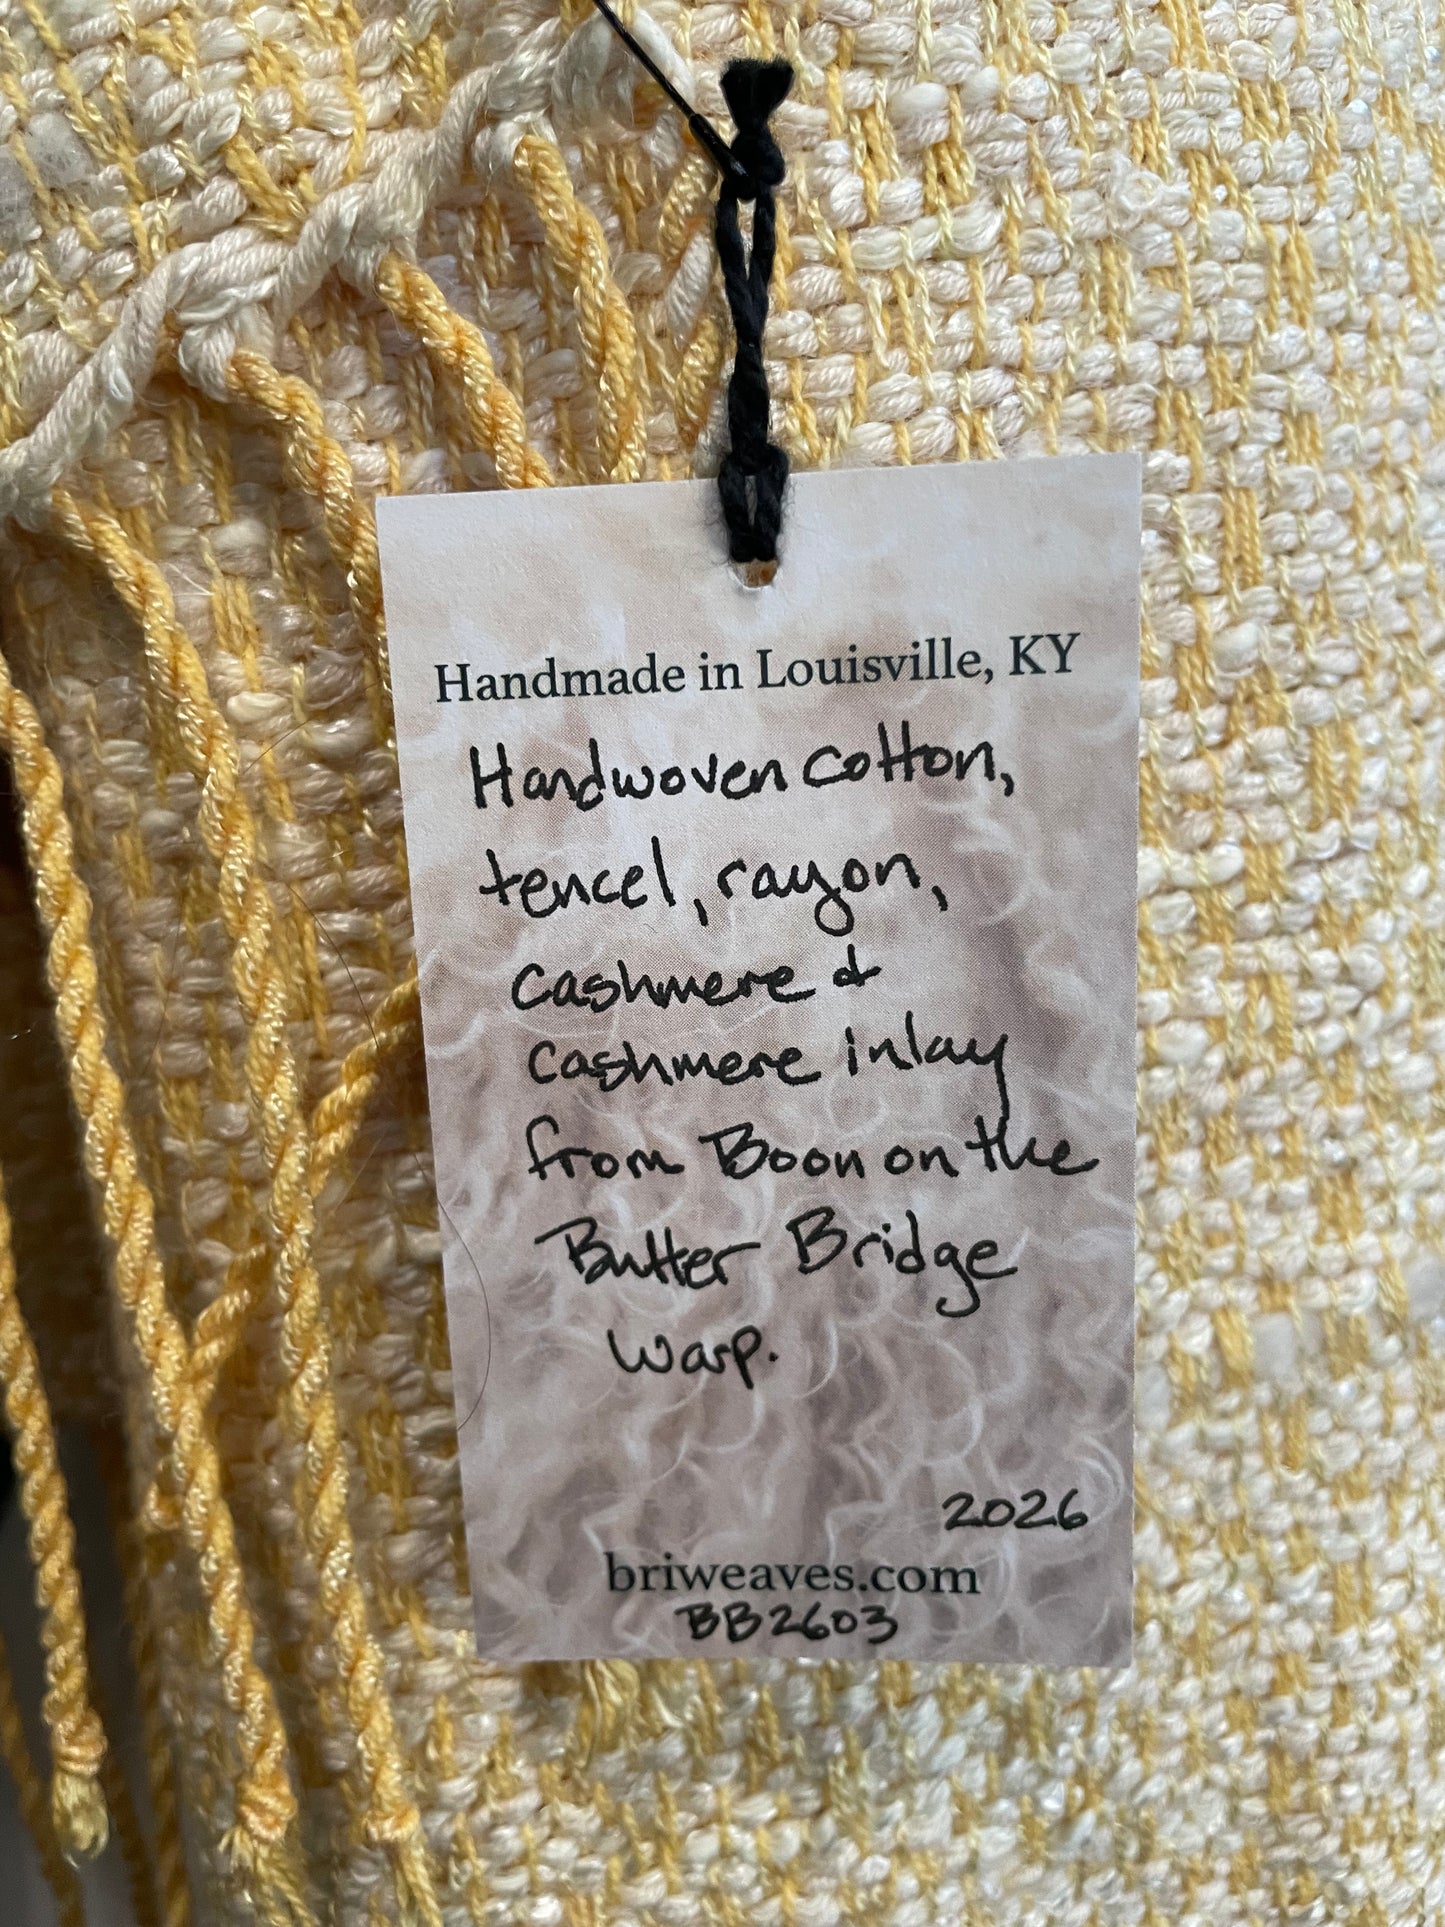 Handmade in Louisville, KY
Handwoven cotton,
tencel, rayon,
cashmere &
cashmere inlay
from Boon on the
Butter Bridge
warp.
2026
briweaves.com
BB2603